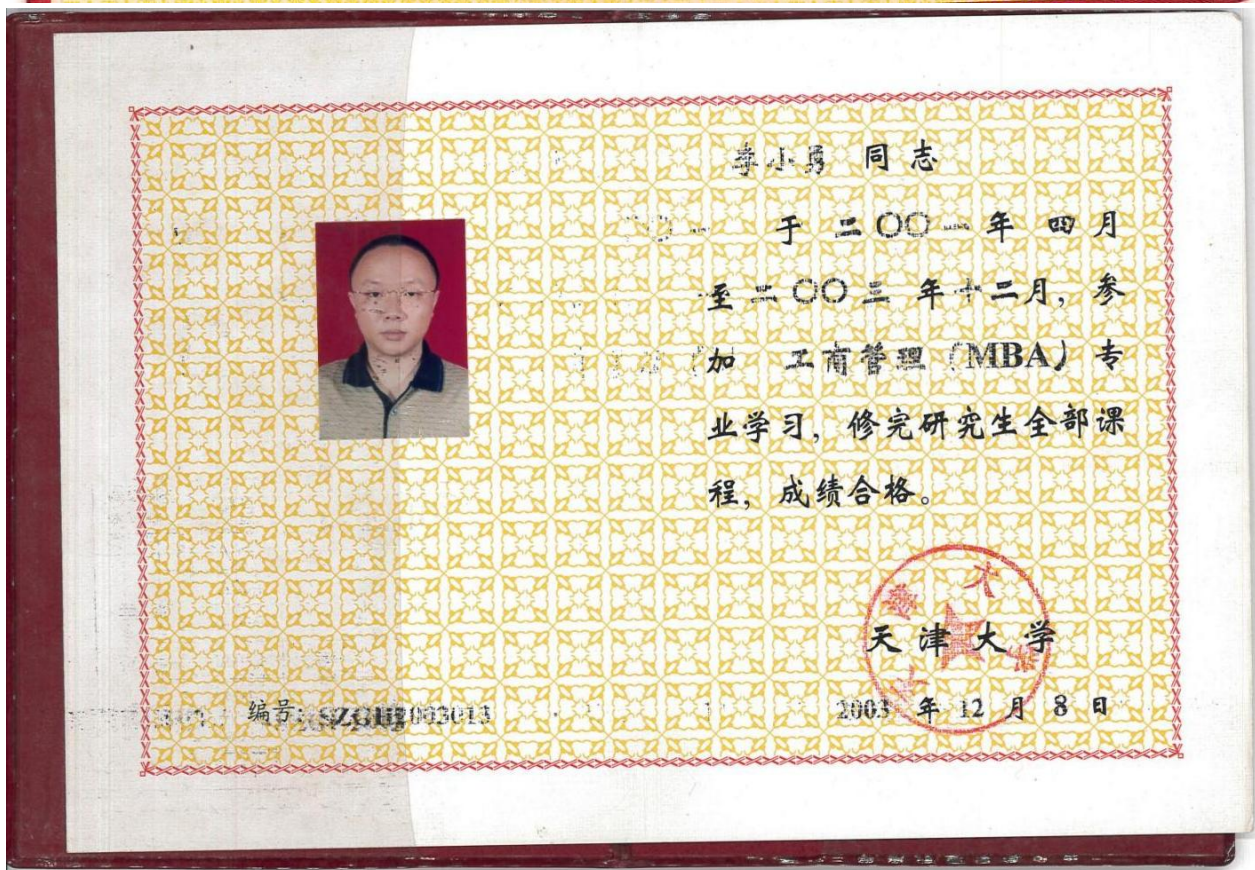 李小勇 同志
于 二〇〇一 年 四月
至 二〇〇三 年十二月，参
加 工商管理（MBA）专
业学习，修完研究生全部课
程，成绩合格。
天津大学
天津大学
2003 年 12 月 8 日
编号: